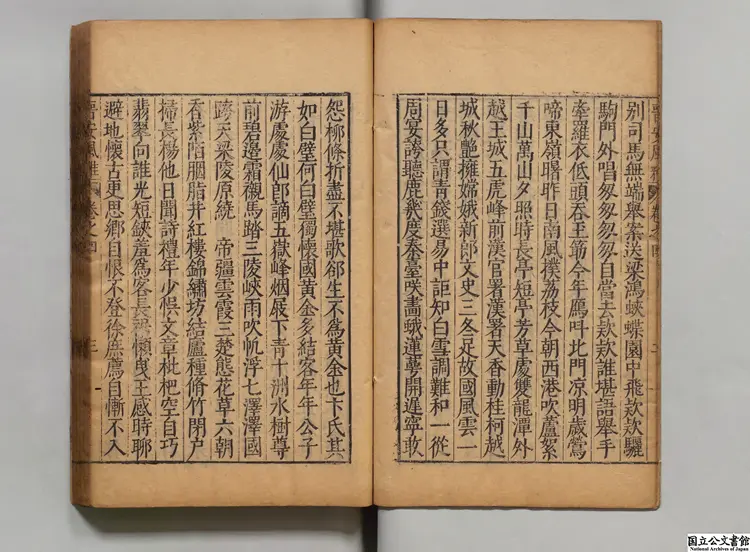 别司馬無端舉案送梁鴻蛺蝶園中飛款款驪
駒門外唱匆匆匆匆自當去款款誰堪語舉手
牽羅衣低頭吞玉筯今年鴈呌北門凉明歲鶯
啼東嶺曙昨日南風撲荔枝今朝西港吹蘆絮
千山萬山夕照時長亭短亭芳草處雙龍潭外
越王城五虎峰前漢官署漢署天香動桂柯越
城秋艶擁嫦娥新郎文史三冬足故國風雲一
日多只謂青錢選易中詎知白雪調難和一從
周宴誇聽鹿幾度秦臺咲畫蛾蓮蕚開遲寧敢
怨柳條折盡不堪歌郤生不爲黃金也卞氏其
如白璧何白璧獨懷國黃金多結客年年公子
游處處仙郎謫五嶽峰烟展下青十洲水樹尊
前碧邊霜襯馬踏三陵峽雨吹帆浮七澤澤國
跨天梁陵原繞帝疆雲霞三楚態花草六朝
香紫陌胭脂井紅樓錦繡坊結廬種脩竹閉户
掃長楊他日聞詩禮年少悞文章枇杷空自巧
翡翠向誰光短鋏羞爲客長裾懶曳王感時聊
避地懷古更思鄉自恨不登徐庶鴈自慚不入
晉安風雅 卷之四 三
國立公文書館
National Archives of Japan